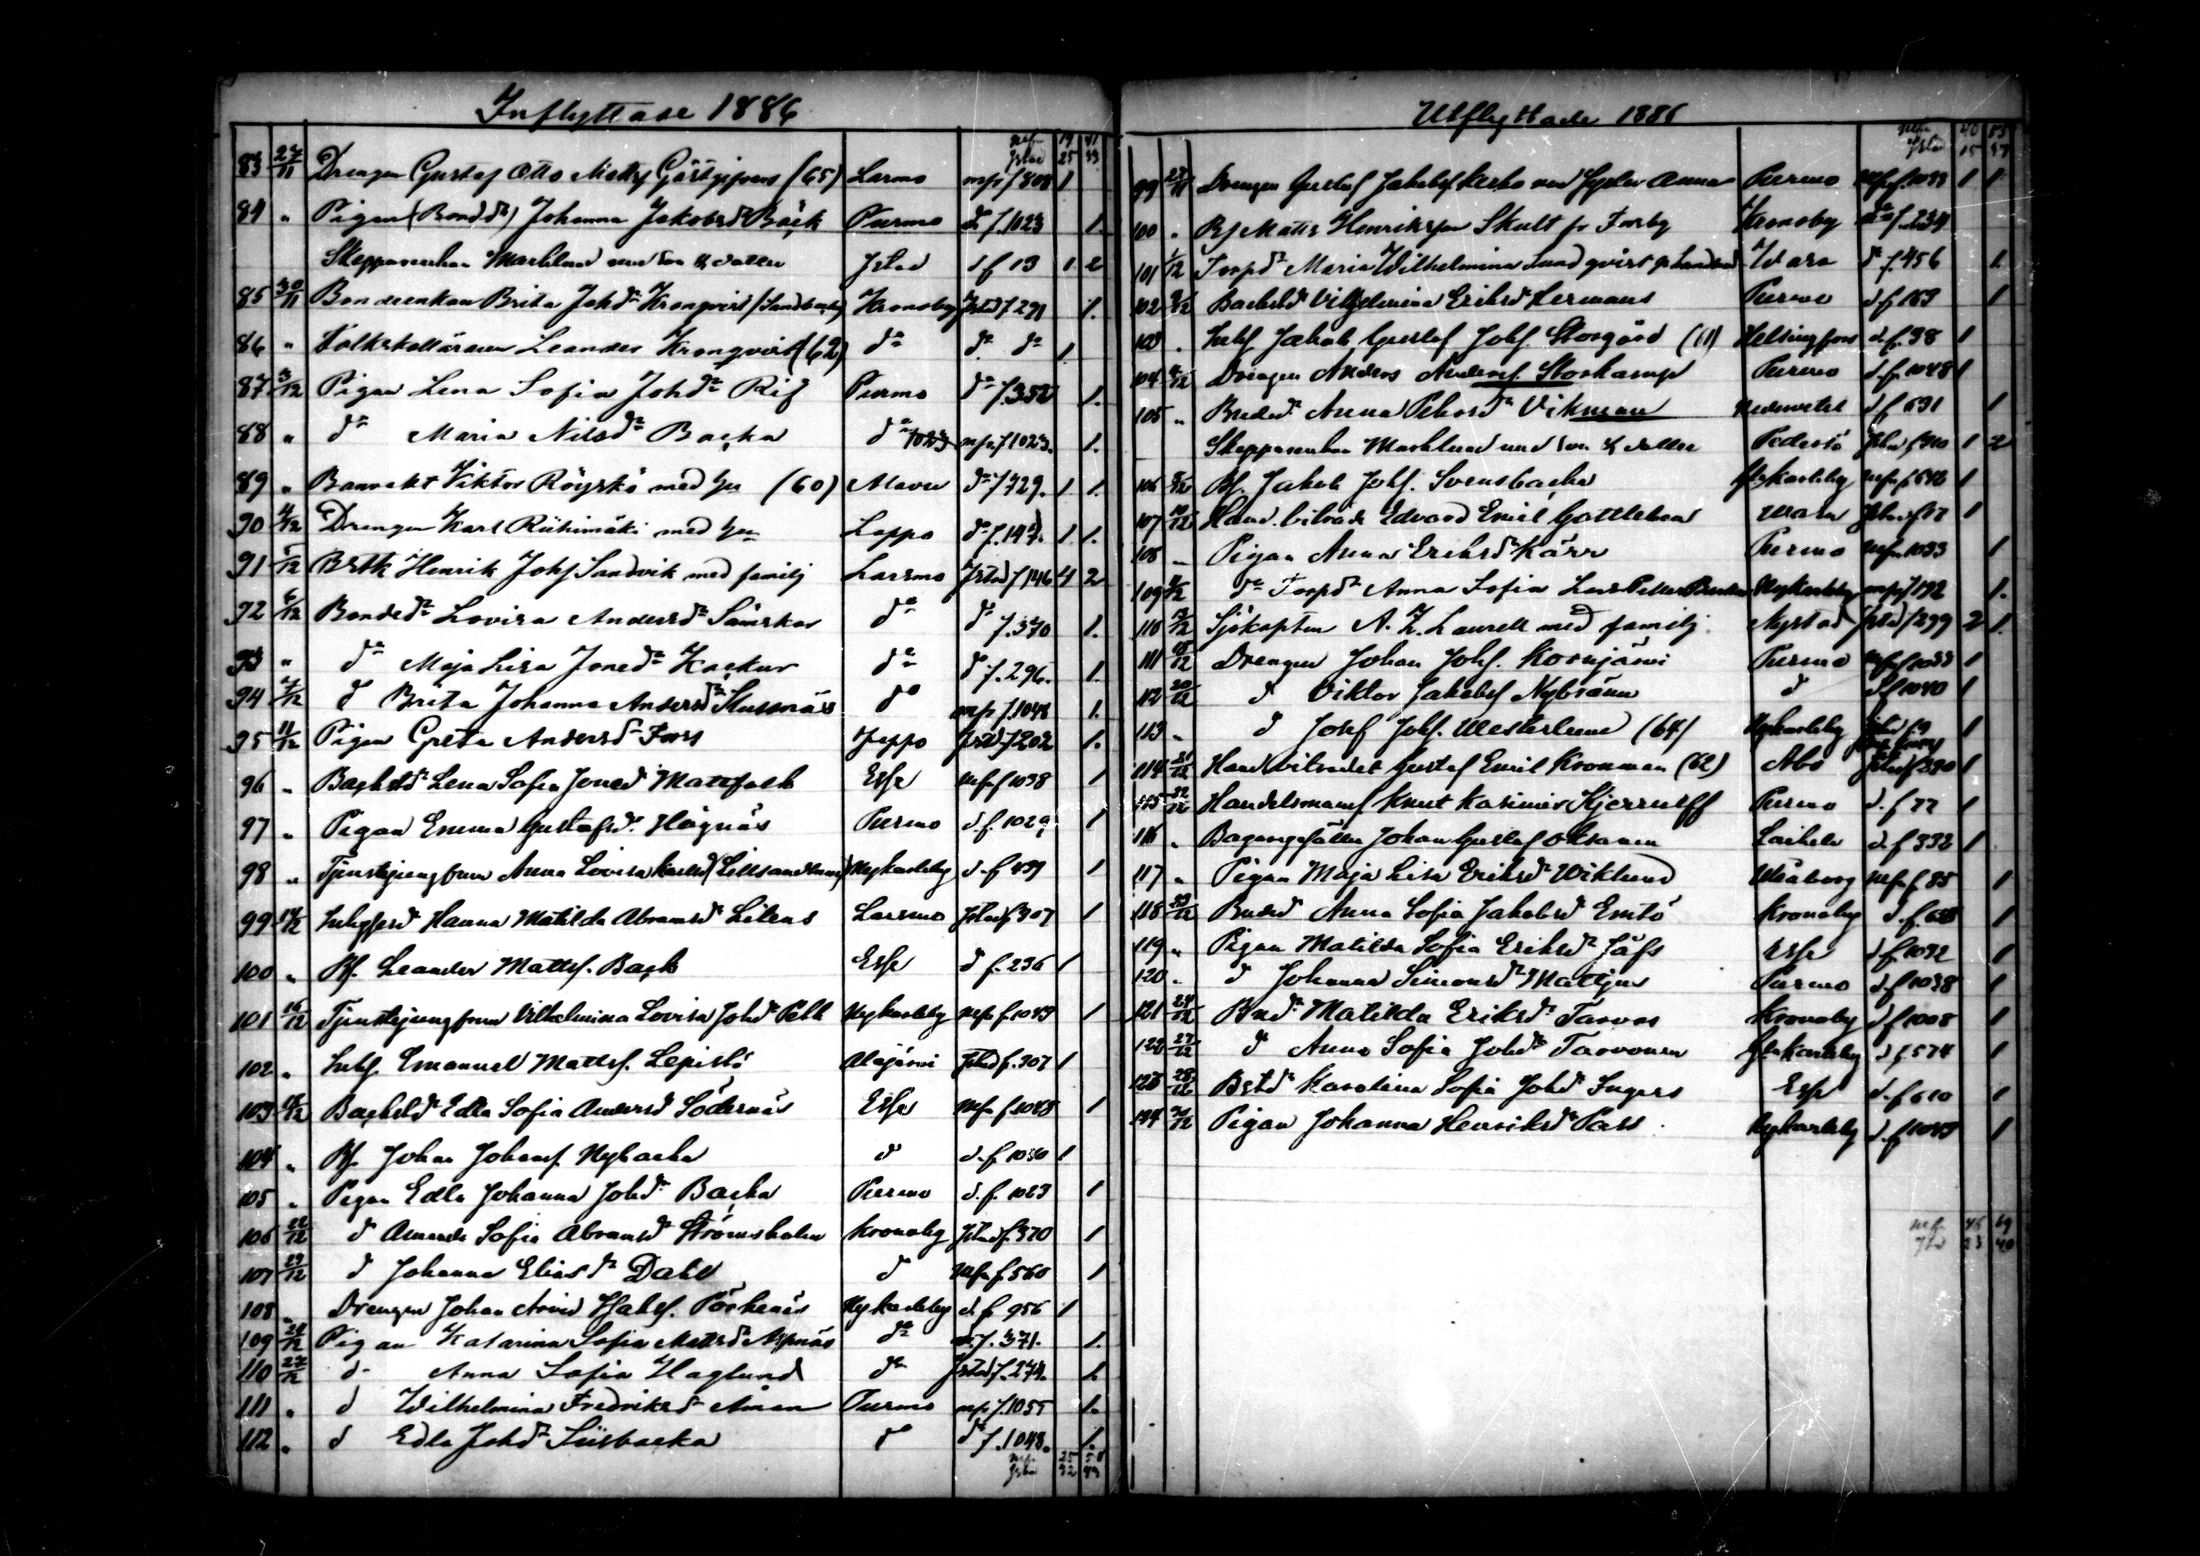 Inflyttade 1886
mfr 19 41
Jstad 25 33
83 27/11 Drengen Gustaf Otto Matts Gästgifvars (65) Larmo mfr f 808 1
84 " Pigan (Bondd) Johanna Jakobsd Bäck Purmo d f. 1023 1.
Skepparenkan Marklund med son & dotter Jstad d f 13 1 2
85 30/11 Bondeenkan Brita Johd Kronqvist (Sandbacka) Kronoby Jstad f 291 1.
86 " Folkskolläraren Leander Kronqvist (62) d d d 1.
87 3/12 Pigan Lena Sofia Johd Rif Purmo d f. 352 1.
88 " d Maria Nilsd Backa d 1023 mfr f 1023. 1.
89 " Banvakt Viktor Röyskö med hu (60) Alavu d f 729. 1 1.
90 4/12 Drengen Karl Riihimäki med hu Lappo d f. 147. 1 1.
91 5/12 Bstk Henrik Johs Sandvik med familj Larsmo Jstad f 146 4 2
92 6/12 Bonded Lovisa Andersd Sämskar d d f. 370 1.
93 " d Maja Lisa Jonsd Kackur d d f. 296. 1.
94 7/12 d Brita Johanna Andersd Slussnäs d mfr f. 1048 1.
95 11/12 Pigan Greta Andersd Fors Jeppo Jstd. f 202 1.
96 " Backstd Lena Sofia Jonsd Mattfolk Esse mfr f 1038 1
97 " Pigan Emma Gustafsd. Högnäs Purmo d. f. 1029 1
98 " Tjenstejungfrun Anna Lovisa Karlsd (Lillsandlund) Nykarleby d. f 439 1
99 14/12 Inhysesd Hanna Matilda Abramsd Lilens Larsmo Jstad f 307 1
100 " Bs. Leander Mattss. Back Esse d f. 236 1
101 16/12 Tjenstejungfrun Vilhelmina Lovisa Johd Pelk Nykarleby mfr f. 1049 1
102 " Inhs. Emanuel Mattss. Lepistö Alajärvi Jstad f. 307 1
103 18/12 Backstd Edla Sofia Andersd Södernäs Esse mfr f. 1048 1
104 " Bs. Johan Johanss. Nybacka d d. f. 1030 1
105 " Pigan Edla Johanna Johd Backa Purmo d. f. 1023 1
106 22/12 d Amanda Sofia Abramsd Strömsholm Kronoby Jstad f. 320 1
107 23/12 d Johanna Eliasd Dahl d mfr f. 560 1
108 " Drengen Johan Arvid Jakobs. Pörkenäs Nykarleby d. f 956 1
109 24/12 Pigan Katarina Sofia Mattsd Aspnäs d f. 371. 1.
110 27/12 d Anna Sofia Haglund d Jstad f. 274. 1.
111 " d Wilhelmina Fredriksd Åman Purmo mfr f. 1055 1.
112 " d Edla Johd Siisbacka d d f. 1048. 1.
mfr 25 58
Jstad 32 43
Utflyttade 1886
mfr 40 53
Jstad 15 37
99 27/11 Drengen Gustaf Jakobss. Kesko med syster Anna Purmo mfr f. 1033 1 1
100 " Bs Matts Henriksson Skult fr Forsby Kronoby d f. 234
101 1/12 Torpd Maria Wilhelmina Sandqvist Wasa d f. 456 1
102 2/12 Backstd Vilhelmina Eriksd Hermans Purmo d. f 163 1
103 " Inhs Jakob Gustaf Johs. Storgård (61) Helsingfors d. f. 38 1
104 4/12 Drengen Anders Anderss. Storkamp Purmo d. f. 1048 1
105 " Bonded Anna Pehrsd Vikman Nedervetil d f 631 1
Skepparenkan Marklund med son & dotter Pedersö Jstad f 310 1 2
106 8/12 Bs. Jakob Johs. Svensbacka Glkarleby mfr f 646 1
107 10/12 Hand.biträde Edvard Emil Gottleben Wasa Jstad f 17 1
108 " Pigan Anna Eriksd Kärr Purmo mfr 1033 1
109 d Torpd Anna Sofia Nykarleby mfr f 192 1.
110 13/12 Sjökapten A. Z. Laurell med familj Nystad Jstad f 299 2 1.
111 18/12 Drengen Johan Johs. Korsjärvi Purmo mfr f 1033 1
112 20/12 d Viktor Jakobss Nybränn d d f 1040 1
113 " d Josef Johs. Westerlund (64) Nykarleby Jstad f. 9 1
114 21/12 Handbiträdet Gustaf Emil Kronman (62) Åbo Jstad f 330 1
115 22/12 Handelsmans. Knut Kasimir Kjerrulff Purmo d. f 77 1
116 " Bagaregesällen Johan Gustaf Oksanen Laihela d. f 332 1
117 " Pigan Maja Lisa Eriksd Wiklund Uleåborg mfr f 85 1
118 23/12 Bonded Anna Sofia Jakobsd Emtö Kronoby d. f. 638 1
119 " Pigan Matilda Sofia Eriksd Jäfs Esse d. f 1032 1
120 " d Johanna Simonsd Mattjus Purmo d. f 1038 1
121 24/12 Bnd. Matilda Eriksd Tarvos Kronoby d f 1008 1
122 27/12 d Anna Sofia Johd Tarvonen Glakarleby d f. 574 1
123 28/12 Bstd. Karolina Sofia Johd Ingers Esse d. f 610 1
124 30/12 Pigan Johanna Henriksd Pass. Nykarleby d. f 1049 1
mfr 46 69
Jstd 23 40